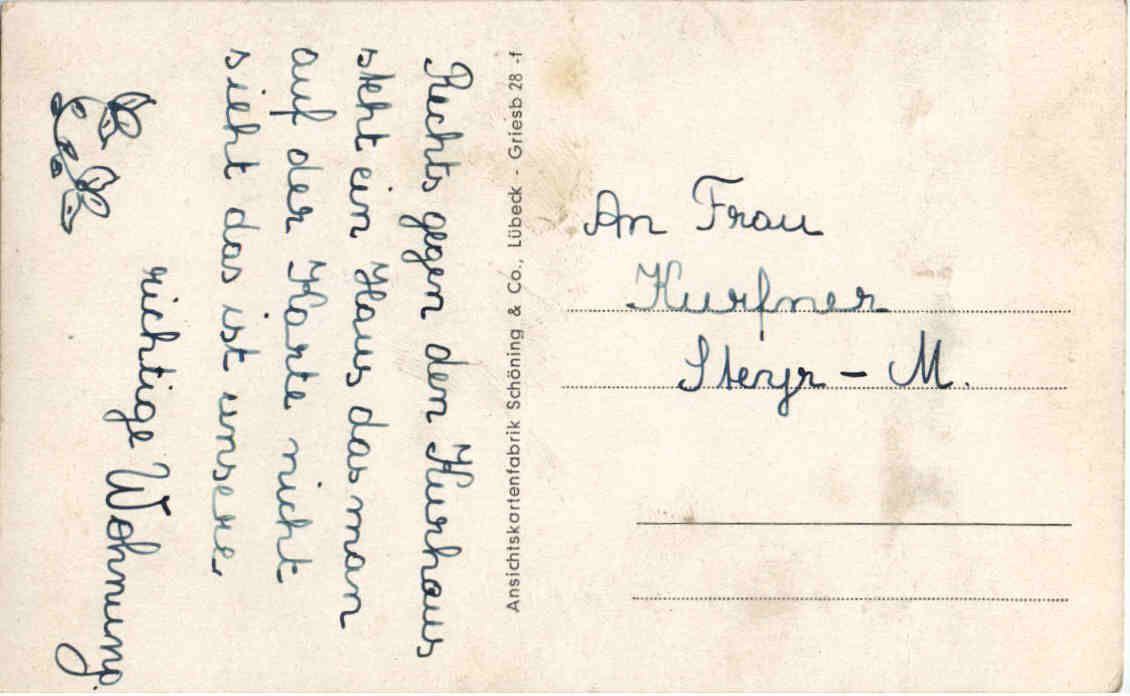 Rechts gegen den Kurhaus
steht ein Haus das man
auf der Karte nicht
sieht das ist unsere
richtige Wohnung.
Ansichtskartenfabrik Schöning & Co., Lübeck - Griesb 28 -f
An Frau
Kurfner
Steyr - M.